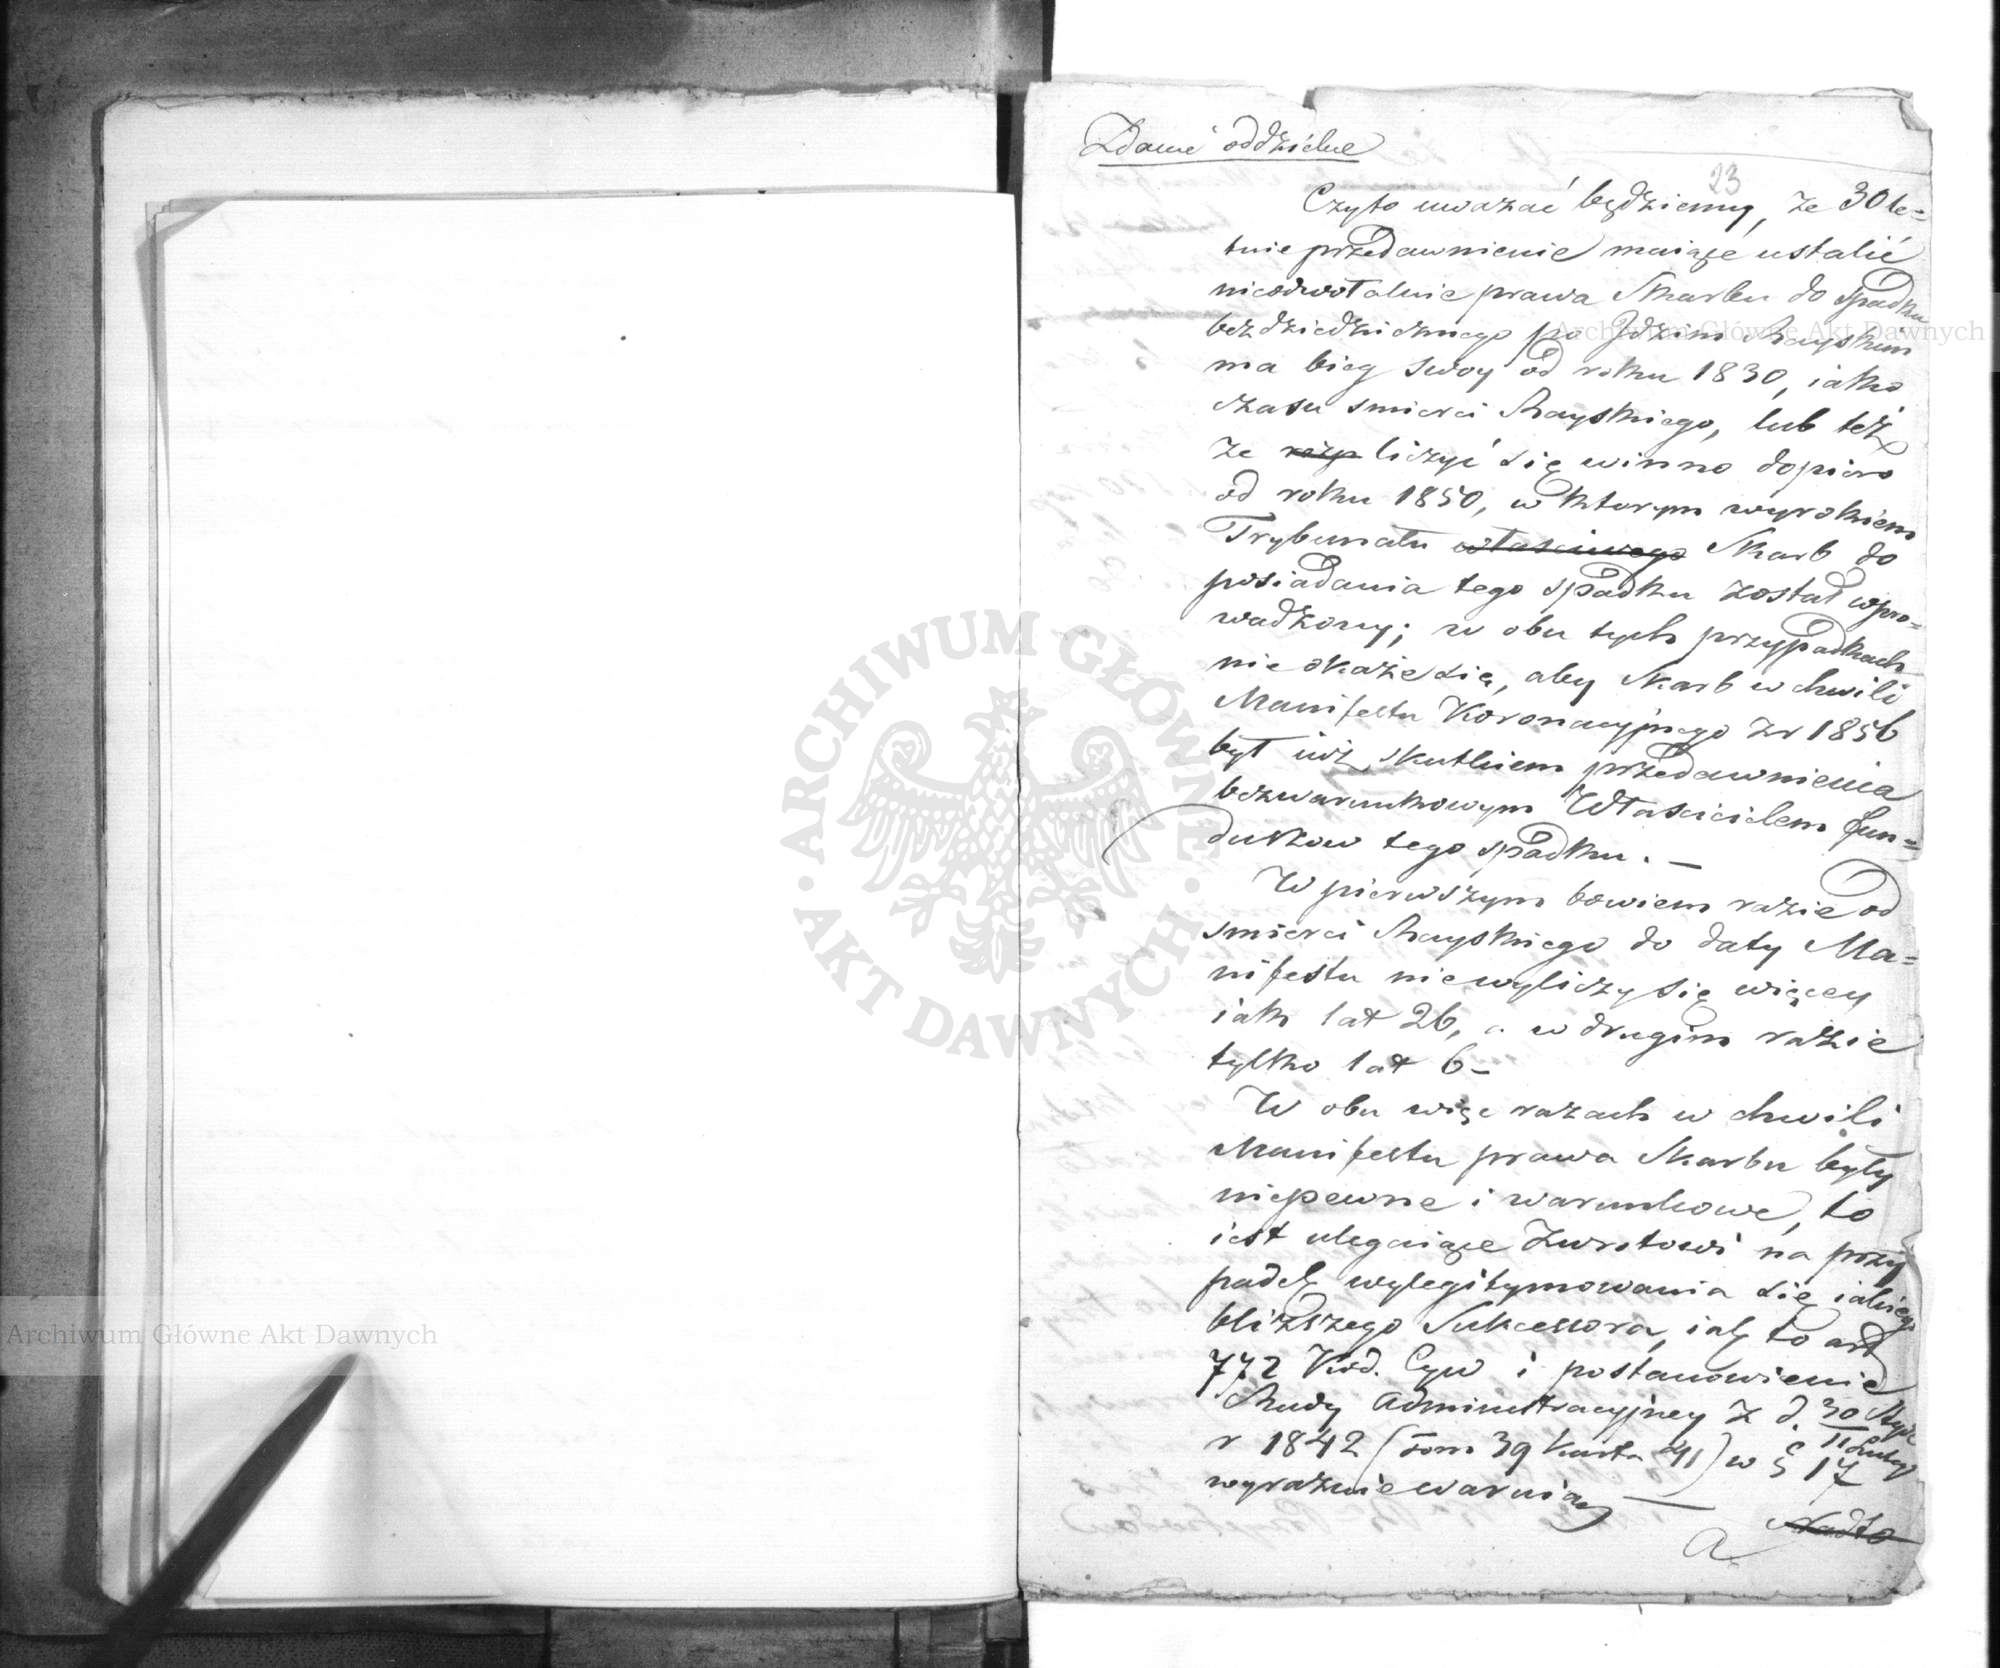 Zdanie oddzielne
23
Czyto uważać będziemy, że 30 le=
tnie przedawnienie maiące ustalić
nieodwołalnie prawa Skarbu do spadku
bezdziedzicznego po Jdzim Rayskim
ma bieg swoy od roku 1830, iako
czasu smierci Rayskiego, lub też
że rozp liczyć się winno dopiero
od roku 1850, w ktorym wyrokiem
Trybunału właściwego Skarb do
posiadania tego spadku został wpro=
wadzony; w obu tych przypadkach
nie okaże się, aby Skarb w chwili
Manifestu Koronacyjnego z r 1856
był iuż skutkiem przedawnienia
bezwarunkowym Właścicielem fun=
duszow tego spadku. —
W pierwszym bowiem razie od
smierci Rayskiego do daty Ma=
nifestu niewyliczy się więcey
iak lat 26, a w drugim razie
tylko lat 6 —
W obu więc razach w chwili
Manifestu prawa Skarbu były
niepewne i warunkowe, to
iest ulegaiące zwrotowi na przy
padek wylegitymowania się iakiego
bliższego Sukcessora, iak to art
772 Kod. Cyw i postanowienie
Rady Administracyjney z d. 30 Stycz
11 Lutego
r 1842 (tom 39 karta 41) w § 17
wyraźnie warują —
Nadto
Archiwum Główne Akt Dawnych
Archiwum Główne Akt Dawnych
ARCHIWUM GŁÓWNE · AKT DAWNYCH ·